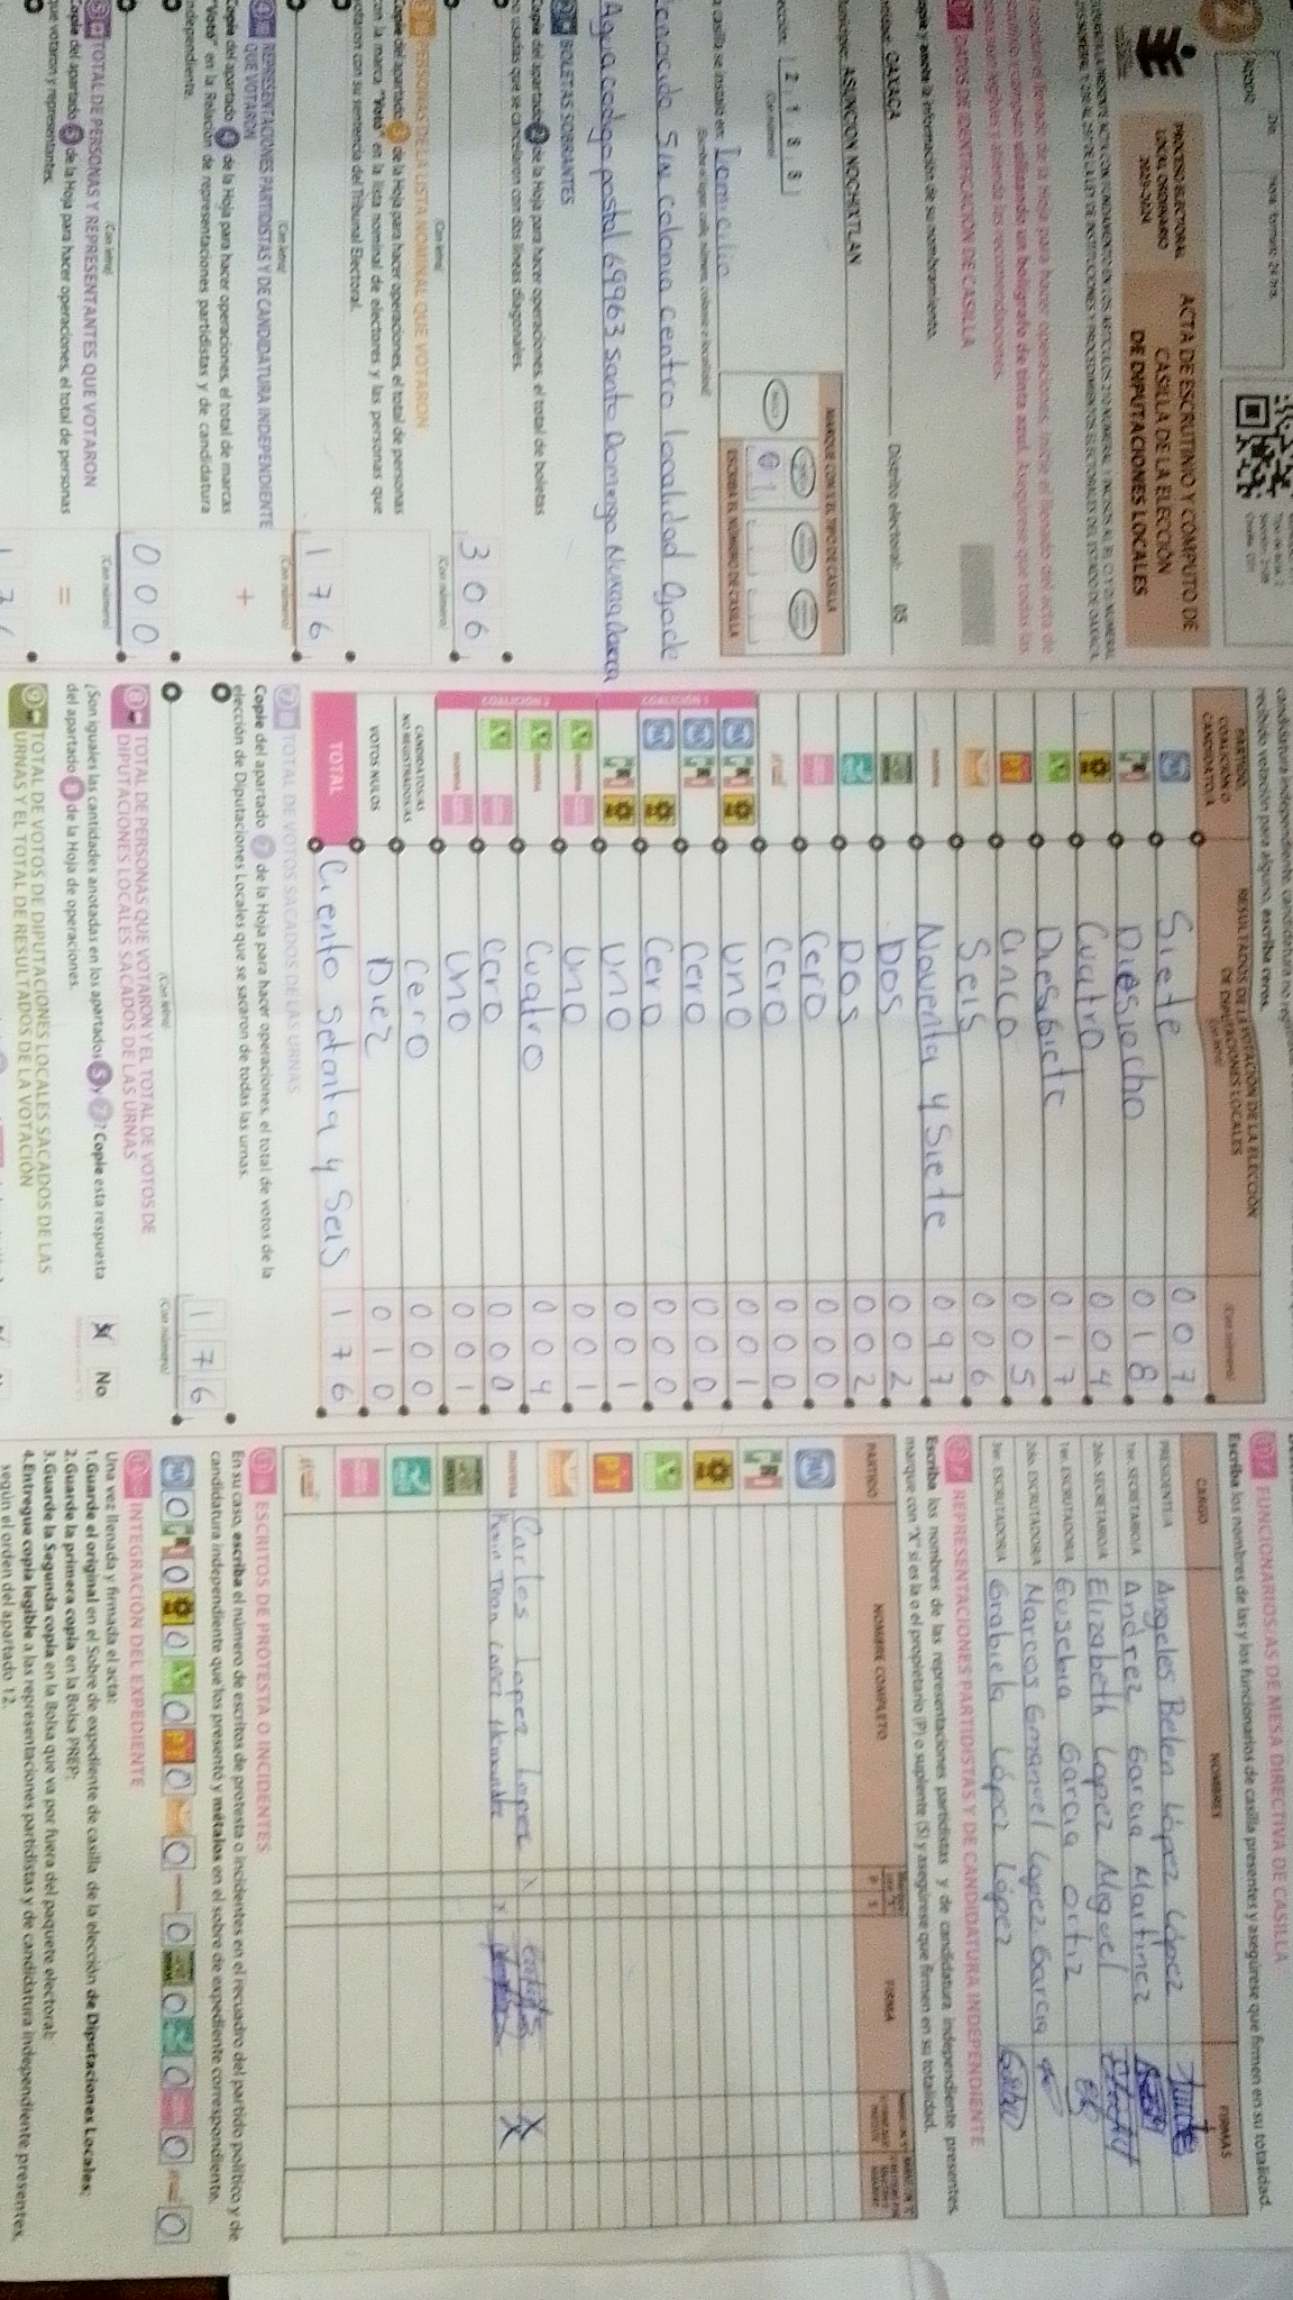 PROCESO ELECTORAL
LOCAL ORDINARIO
2023-2024
ACTA DE ESCRUTINIO Y CÓMPUTO DE
CASILLA DE LA ELECCIÓN
DE DIPUTACIONES LOCALES
DATOS DE IDENTIFICACIÓN DE CASILLA
Copie y anote la información de su nombramiento.
Entidad: OAXACA Distrito electoral: 05
Municipio: ASUNCIÓN NOCHIXTLÁN
MARQUE CON X EL TIPO DE CASILLA
Sección: 2 1 8 8
(Con número)
0 1
ESCRIBA EL NÚMERO DE CASILLA
La casilla se instaló en: Domicilio
(Escriba el lugar, calle, número, colonia o localidad)
conocido Sin colonia centro localidad Ojo de
Agua codigo postal 69963 Santo Domingo Nuxaa Oaxaca
2 BOLETAS SOBRANTES
Copie del apartado 2 de la Hoja para hacer operaciones, el total de boletas
no usadas que se cancelaron con dos líneas diagonales.
(Con letra)
306
(Con número)
3 PERSONAS DE LA LISTA NOMINAL QUE VOTARON
Copie del apartado 3 de la Hoja para hacer operaciones, el total de personas
con la marca "Votó" en la lista nominal de electores y las personas que
votaron con su sentencia del Tribunal Electoral.
(Con letra)
176
(Con número)
4 REPRESENTACIONES PARTIDISTAS Y DE CANDIDATURA INDEPENDIENTE
QUE VOTARON
Copie del apartado 4 de la Hoja para hacer operaciones, el total de marcas
"Votó" en la Relación de representaciones partidistas y de candidatura
independiente.
+
(Con letra)
000
(Con número)
5 TOTAL DE PERSONAS Y REPRESENTANTES QUE VOTARON
Copie del apartado 5 de la Hoja para hacer operaciones, el total de personas
que votaron y representantes.
=
recibido votación para alguno, escriba ceros.
PARTIDO,
COALICIÓN O
CANDIDATO/A
RESULTADOS DE LA VOTACIÓN DE LA ELECCIÓN
DE DIPUTACIONES LOCALES
(Con letra)
(Con número)
PAN Siete 007
PRI Diesiocho 018
PRD Cuatro 004
Diesisiete 017
PT cinco 005
Seis 006
morena Noventa y Siete 097
Dos 002
Dos 002
Cero 000
Cero 000
COALICIÓN 1
PAN PRI PRD uno 001
PAN PRI Cero 000
PAN PRD Cero 000
PRI PRD uno 001
COALICIÓN 2
morena uno 001
morena Cuatro 004
Cero 000
morena uno 001
CANDIDATOS/AS
NO REGISTRADOS/AS Cero 000
VOTOS NULOS Diez 010
TOTAL Ciento Setenta y Seis 176
7 TOTAL DE VOTOS SACADOS DE LAS URNAS
Copie del apartado 7 de la Hoja para hacer operaciones, el total de votos de la
elección de Diputaciones Locales que se sacaron de todas las urnas.
(Con letra)
176
(Con número)
8 TOTAL DE PERSONAS QUE VOTARON Y EL TOTAL DE VOTOS DE
DIPUTACIONES LOCALES SACADOS DE LAS URNAS
¿Son iguales las cantidades anotadas en los apartados 5 y 7? Copie esta respuesta
del apartado 8 de la Hoja de operaciones.
Sí No
9 TOTAL DE VOTOS DE DIPUTACIONES LOCALES SACADOS DE LAS
URNAS Y EL TOTAL DE RESULTADOS DE LA VOTACIÓN
FUNCIONARIOS/AS DE MESA DIRECTIVA DE CASILLA
Escriba los nombres de las y los funcionarios de casilla presentes y asegúrese que firmen en su totalidad.
CARGO NOMBRES FIRMAS
PRESIDENTE/A Angeles Belen López López
1er. SECRETARIO/A Andrez Garcia Martinez
2do. SECRETARIO/A Elizabeth Lopez Miguel
1er. ESCRUTADOR/A Eusebia Garcia Ortiz
2do. ESCRUTADOR/A Marcos Emanuel Lopez Garcia
3er. ESCRUTADOR/A Grabiela López López
REPRESENTACIONES PARTIDISTAS Y DE CANDIDATURA INDEPENDIENTE
Escriba los nombres de las representaciones partidistas y de candidatura independiente presentes,
marque con "X" si es la o el propietario (P) o suplente (S) y asegúrese que firmen en su totalidad.
PARTIDO NOMBRE COMPLETO FIRMA
PAN
PRI
PRD
PT
morena Carlos Lopez Lopez X
ESCRITOS DE PROTESTA O INCIDENTES
En su caso, escriba el número de escritos de protesta o incidentes en el recuadro del partido político y de
candidatura independiente que los presentó y métalos en el sobre de expediente correspondiente.
INTEGRACIÓN DEL EXPEDIENTE
Una vez llenada y firmada el acta:
1.Guarde el original en el Sobre de expediente de casilla de la elección de Diputaciones Locales;
2.Guarde la primera copia en la Bolsa PREP;
3.Guarde la Segunda copia en la Bolsa que va por fuera del paquete electoral;
4.Entregue copia legible a las representaciones partidistas y de candidatura independiente presentes,
según el orden del apartado 12.